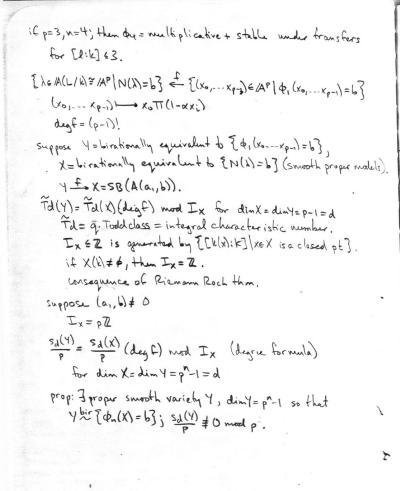 if p=3, n=4; then ϕ₄ = multiplicative + stable under transfers
for [l:k] ≤ 3.
{λ∈A(L/k)≅A^p | N(λ)=b} ←f {(x₀,...x_{p-1})∈A^p | ϕ₁(x₀,...x_{p-1})=b}
(x₀,...x_{p-1}) ⟼ x₀Π(1-αx_i)
deg f = (p-1)!
suppose Y = birationally equivalent to {ϕ₁(x₀...x_{p-1})=b},
X = birationally equivalent to {N(λ)=b} (smooth proper models).
Y →f X = SB(A(a₁,b)).
T̃d(Y) = T̃d(X)(deg f) mod I_X for dim X = dim Y = p-1 = d
T̃d = q·Todd class = integral characteristic number.
I_X ⊆ Z is generated by {[k(x):k] | x∈X is a closed pt}.
if X(k)≠∅, then I_X = Z.
consequence of Riemann Roch thm.
suppose (a₁,b) ≠ 0
I_X = pZ
s_d(Y)/p = s_d(X)/p (deg f) mod I_X (degree formula)
for dim X = dim Y = pⁿ-1 = d
prop: ∃ proper smooth variety Y, dim Y = pⁿ-1 so that
Y ~bir {ϕ_n(X)=b}; s_d(Y)/p ≢ 0 mod p.